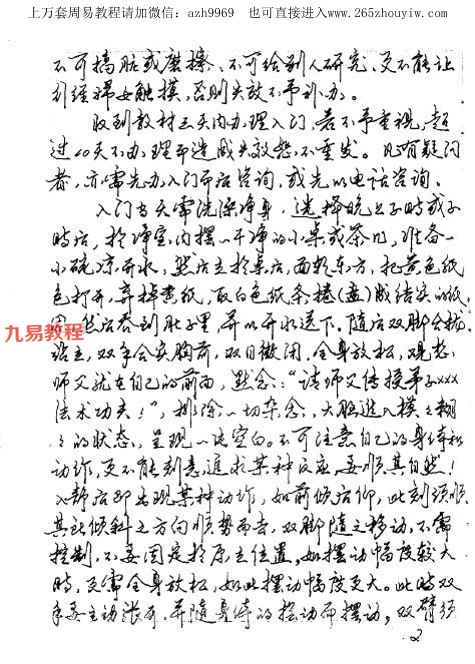 上万套周易教程请加微信：azh9969 也可直接进入www.265zhouyiw.com
不可搞脏或磨擦、不可给别人研究、更不能让
行经妇女触摸，否则失效不予补办。
收到教材三天内办理入门，若不予重视，超
过40天不办理即造成失效恕不重发。凡有疑问
者，亦需先办入门而后咨询，或先以电话咨询。
入门当天需洗澡净身，选择晚上子时或子
时后，于净室内摆一干净的小桌或茶几，准备一
小碗凉开水，然后立于桌后，面朝东方，把黄色纸
包打开，弃掉黄纸，取白色纸条卷(叠)成结实的纸
团，然后吞到肚子里，并以开水送下。随后双脚合拢
站立，双手合实胸前，双目微闭，全身放松，观想
师父就在自己的前面，默念："请师父传授弟子xxx
法术功夫！"，排除一切杂念，大脑进入模々糊
々的状态，呈现一片空白。不可注意自己的身体和
动作，更不能刻意追求某种反应，要顺其自然！
入静后即出现某种动作，如前倾后仰，此刻须顺
其所倾斜之方向顺势而去，双脚随之移动，不需
控制，不要固定于原立位置，如摆动幅度较大
时，更需全身放松，如此摆动幅度更大。此时双
手要主动张开，并随身体的摆动而摆动，双臂须
2
九易教程